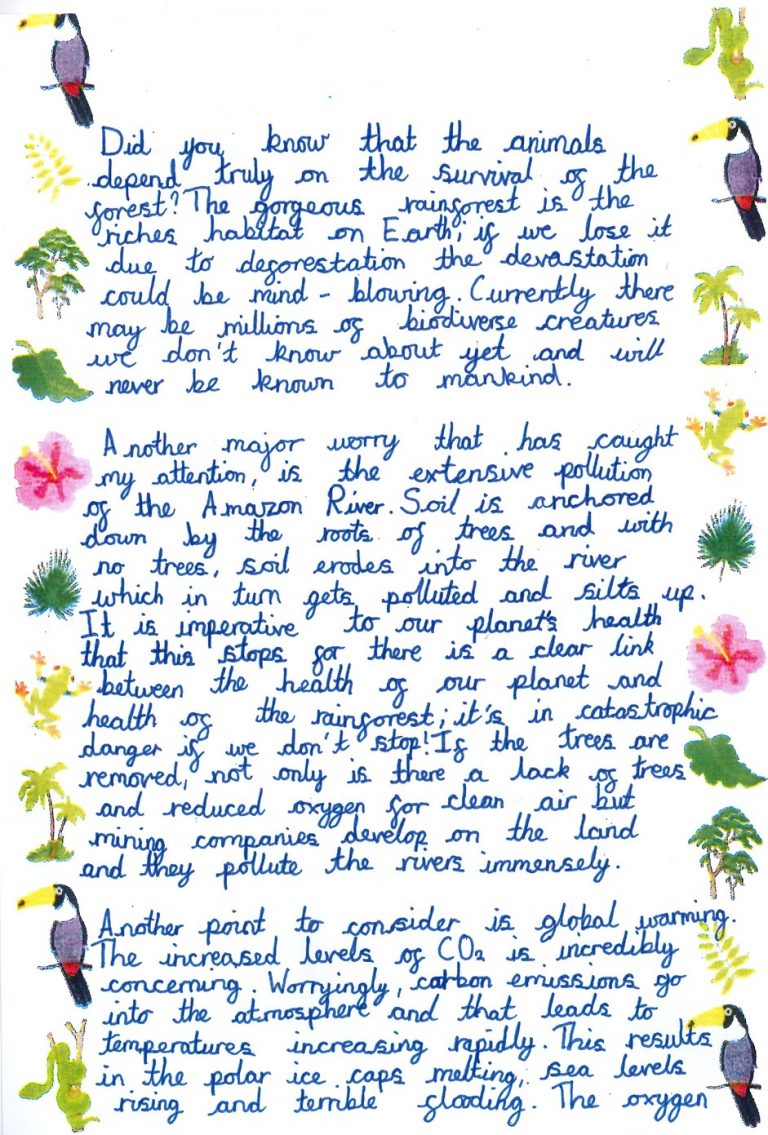 Did you know that the animals
depend truly on the survival of the
forest? The gorgeous rainforest is the
riches habitat on Earth; if we lose it
due to deforestation the devastation
could be mind - blowing. Currently there
may be millions of biodiverse creatures
we don't know about yet and will
never be known to mankind.
Another major worry that has caught
my attention, is the extensive pollution
of the Amazon River. Soil is anchored
down by the roots of trees and with
no trees, soil erodes into the river
which in turn gets polluted and silts up.
It is imperative to our planet's health
that this stops for there is a clear link
between the health of our planet and
health of the rainforest; it's in catastrophic
danger if we don't stop! If the trees are
removed, not only is there a lack of trees
and reduced oxygen for clean air but
mining companies develop on the land
and they pollute the rivers immensely.
Another point to consider is global warming.
The increased levels of CO₂ is incredibly
concerning. Worryingly, carbon emissions go
into the atmosphere and that leads to
temperatures increasing rapidly. This results
in the polar ice caps melting, sea levels
rising and terrible flooding. The oxygen